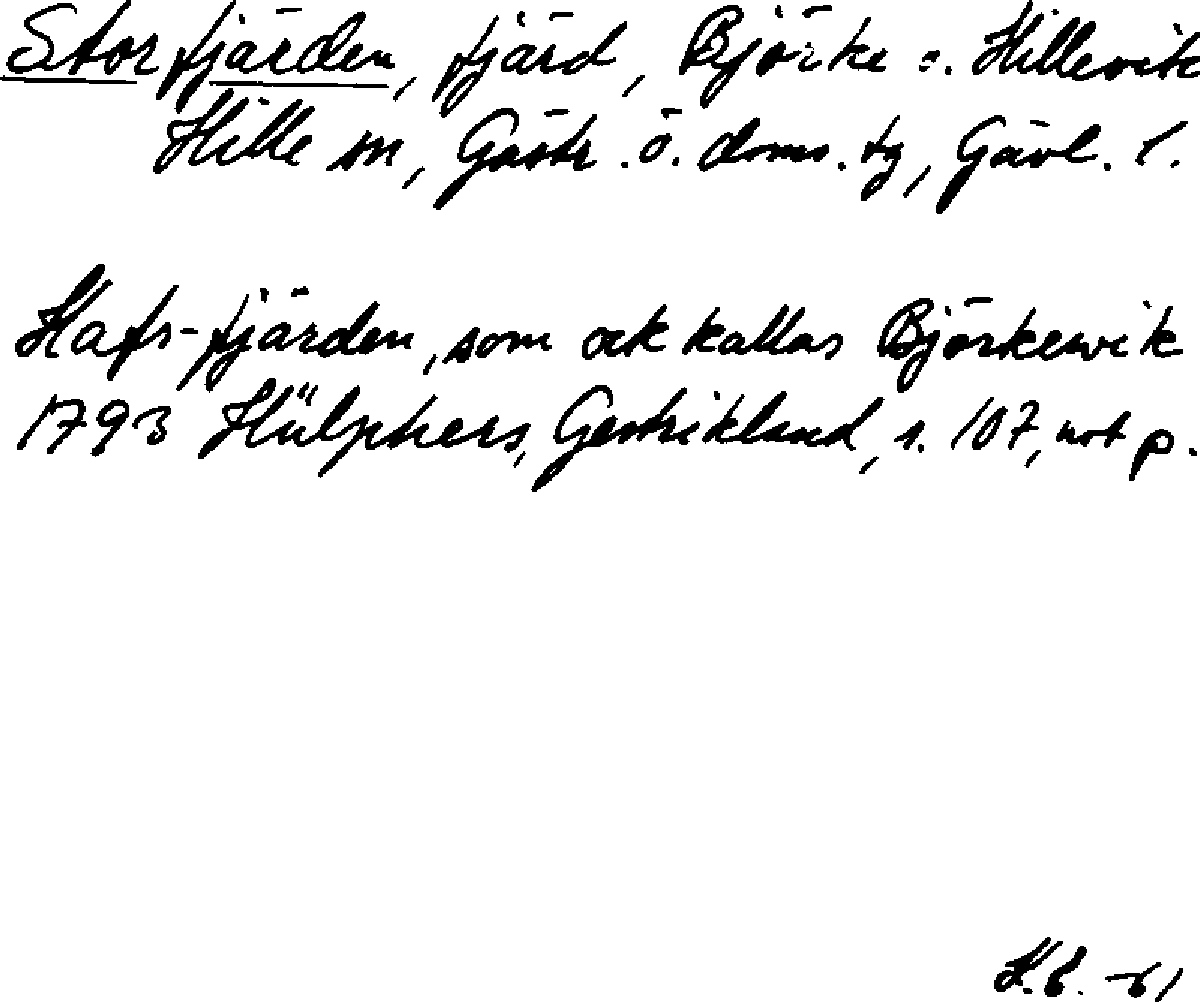 Storfjärden, fjärd, Björke o. Hillevik
Hille sn, Gästr. ö. doms. tg, Gävl. l.
Hafs-fjärden, som ock kallas Björkewik
1793 Hülphers, Gestrikland, s. 107, not p.
-61